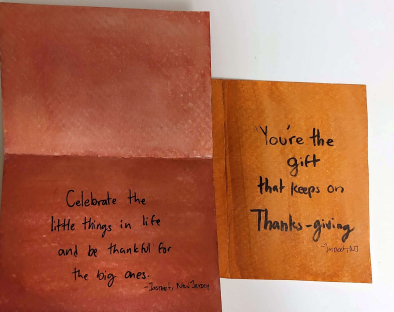 Celebrate the
little things in life
and be thankful for
the big ones.
New Jersey
You're the
gift
that keeps on
Thanks-giving